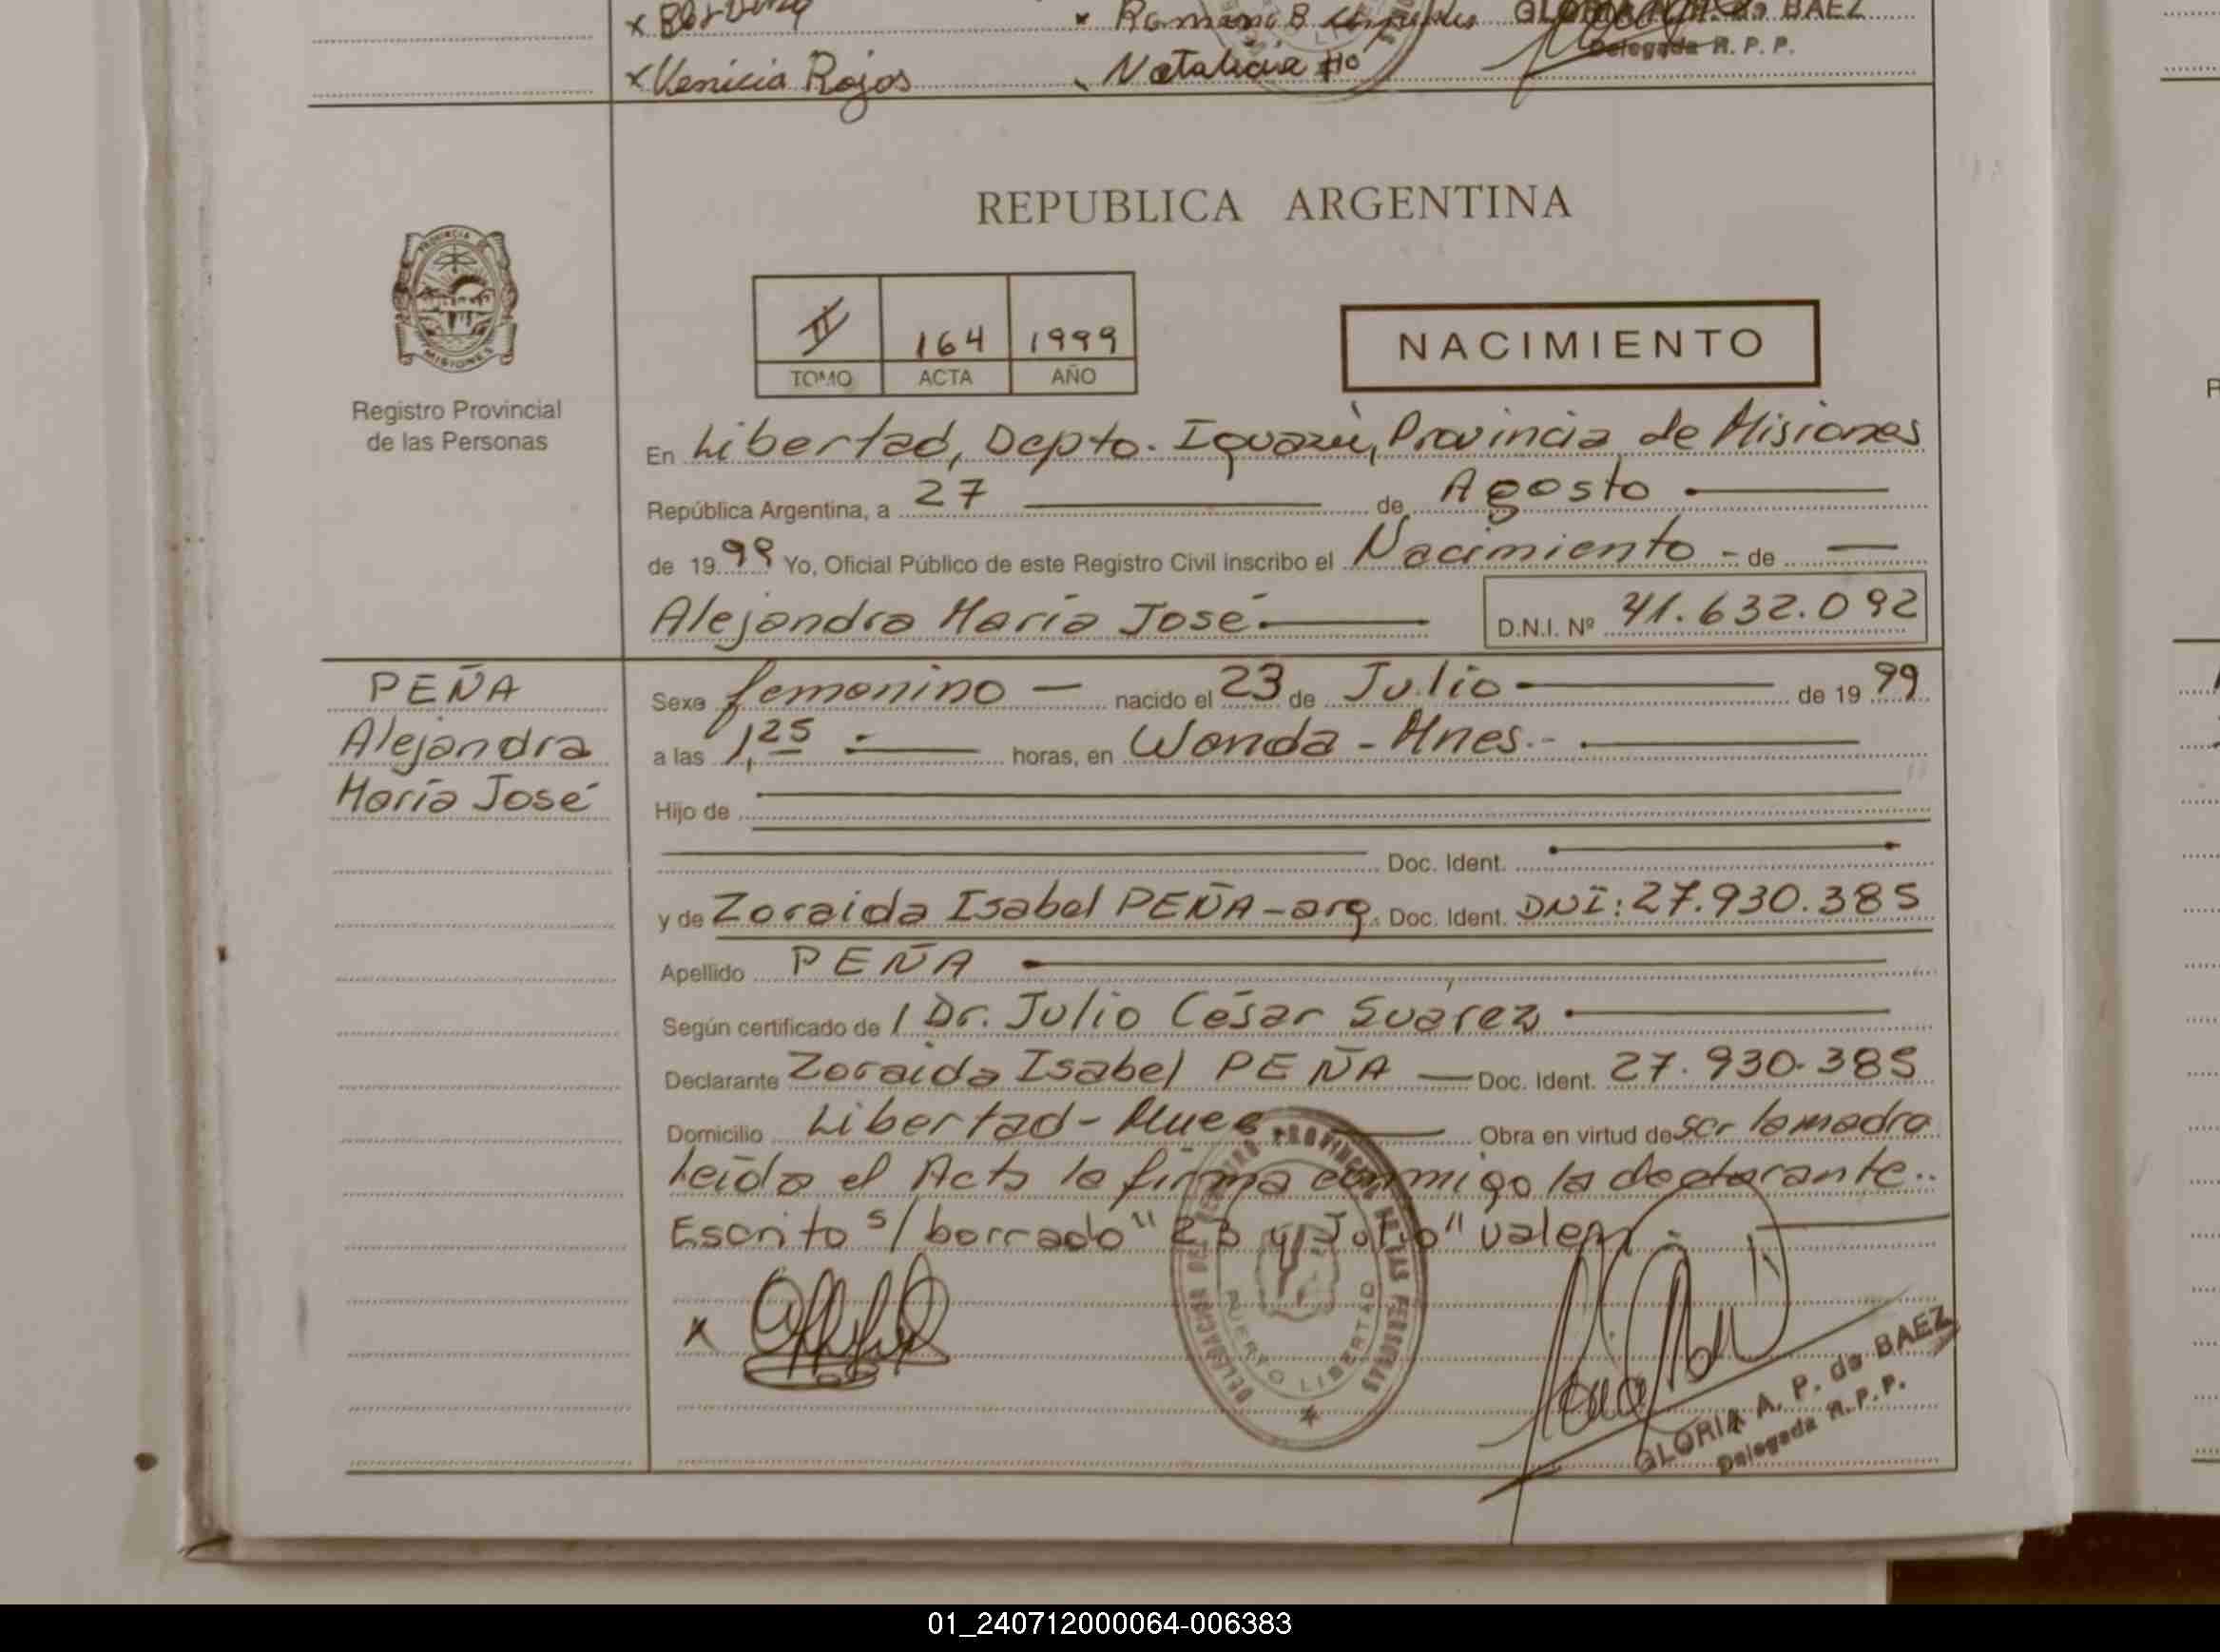 x Venicia Rojas
Natalicia
GLORIA A. P. de BAEZ
Delegada R. P. P.
REPUBLICA ARGENTINA
PROVINCIA DE
MISIONES
Registro Provincial
de las Personas
II 164 1999
TOMO ACTA AÑO
NACIMIENTO
En Libertad, Depto. Iguazú, Provincia de Misiones
República Argentina, a 27 de Agosto
de 1999 Yo, Oficial Público de este Registro Civil inscribo el Nacimiento - de
Alejandra María José
D.N.I. Nº 41.632.092
PEÑA
Alejandra
María José
Sexo femenino - nacido el 23 de Julio de 1999
a las 1,25 horas, en Wanda - Mnes.-
Hijo de
Doc. Ident.
y de Zoraida Isabel PEÑA - arg. Doc. Ident. DNI: 27.930.385
Apellido PEÑA
Según certificado de / Dr. Julio César Suárez
Declarante Zoraida Isabel PEÑA - Doc. Ident. 27.930.385
Domicilio Libertad - Mnes Obra en virtud de ser la madre
Leída el Acta la firma conmigo la declarante..
Escrito s/ borrado "23 y Julio" valen.
x
DELEGACION DEL REGISTRO PROVINCIAL DE LAS PERSONAS
PUERTO LIBERTAD
GLORIA A. P. de BAEZ
Delegada R. P. P.
01_240712000064-006383